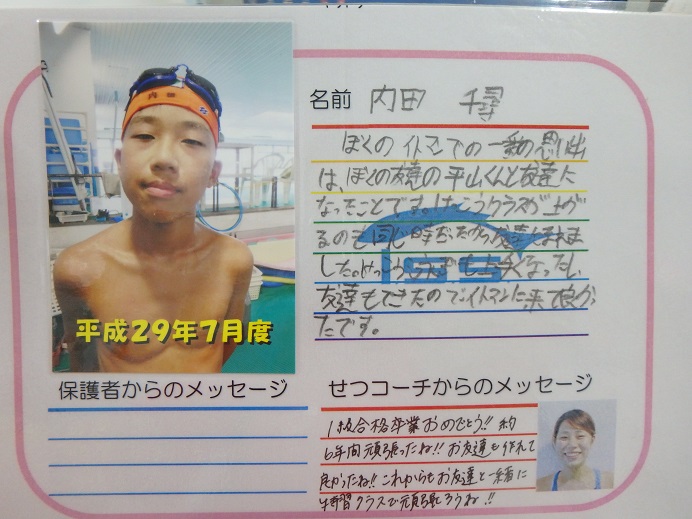 内田
平成29年7月度
名前 内田 千尋
ぼくのイトマンでの一番の思い出
は、ぼくの友達の平山くんと友達に
なったことです。けっこうクラスが上が
るのも同じ時だったから友達になれま
した。けっこう も上手くなったし、
友達もできたのでイトマンに来て良かっ
たです。
ISS
保護者からのメッセージ
せつコーチからのメッセージ
1級合格卒業おめでとう!! 約
6年間頑張ったね!! お友達も作れて
良かったね!! これからもお友達と一緒に
特習クラスで頑張ろうね!!